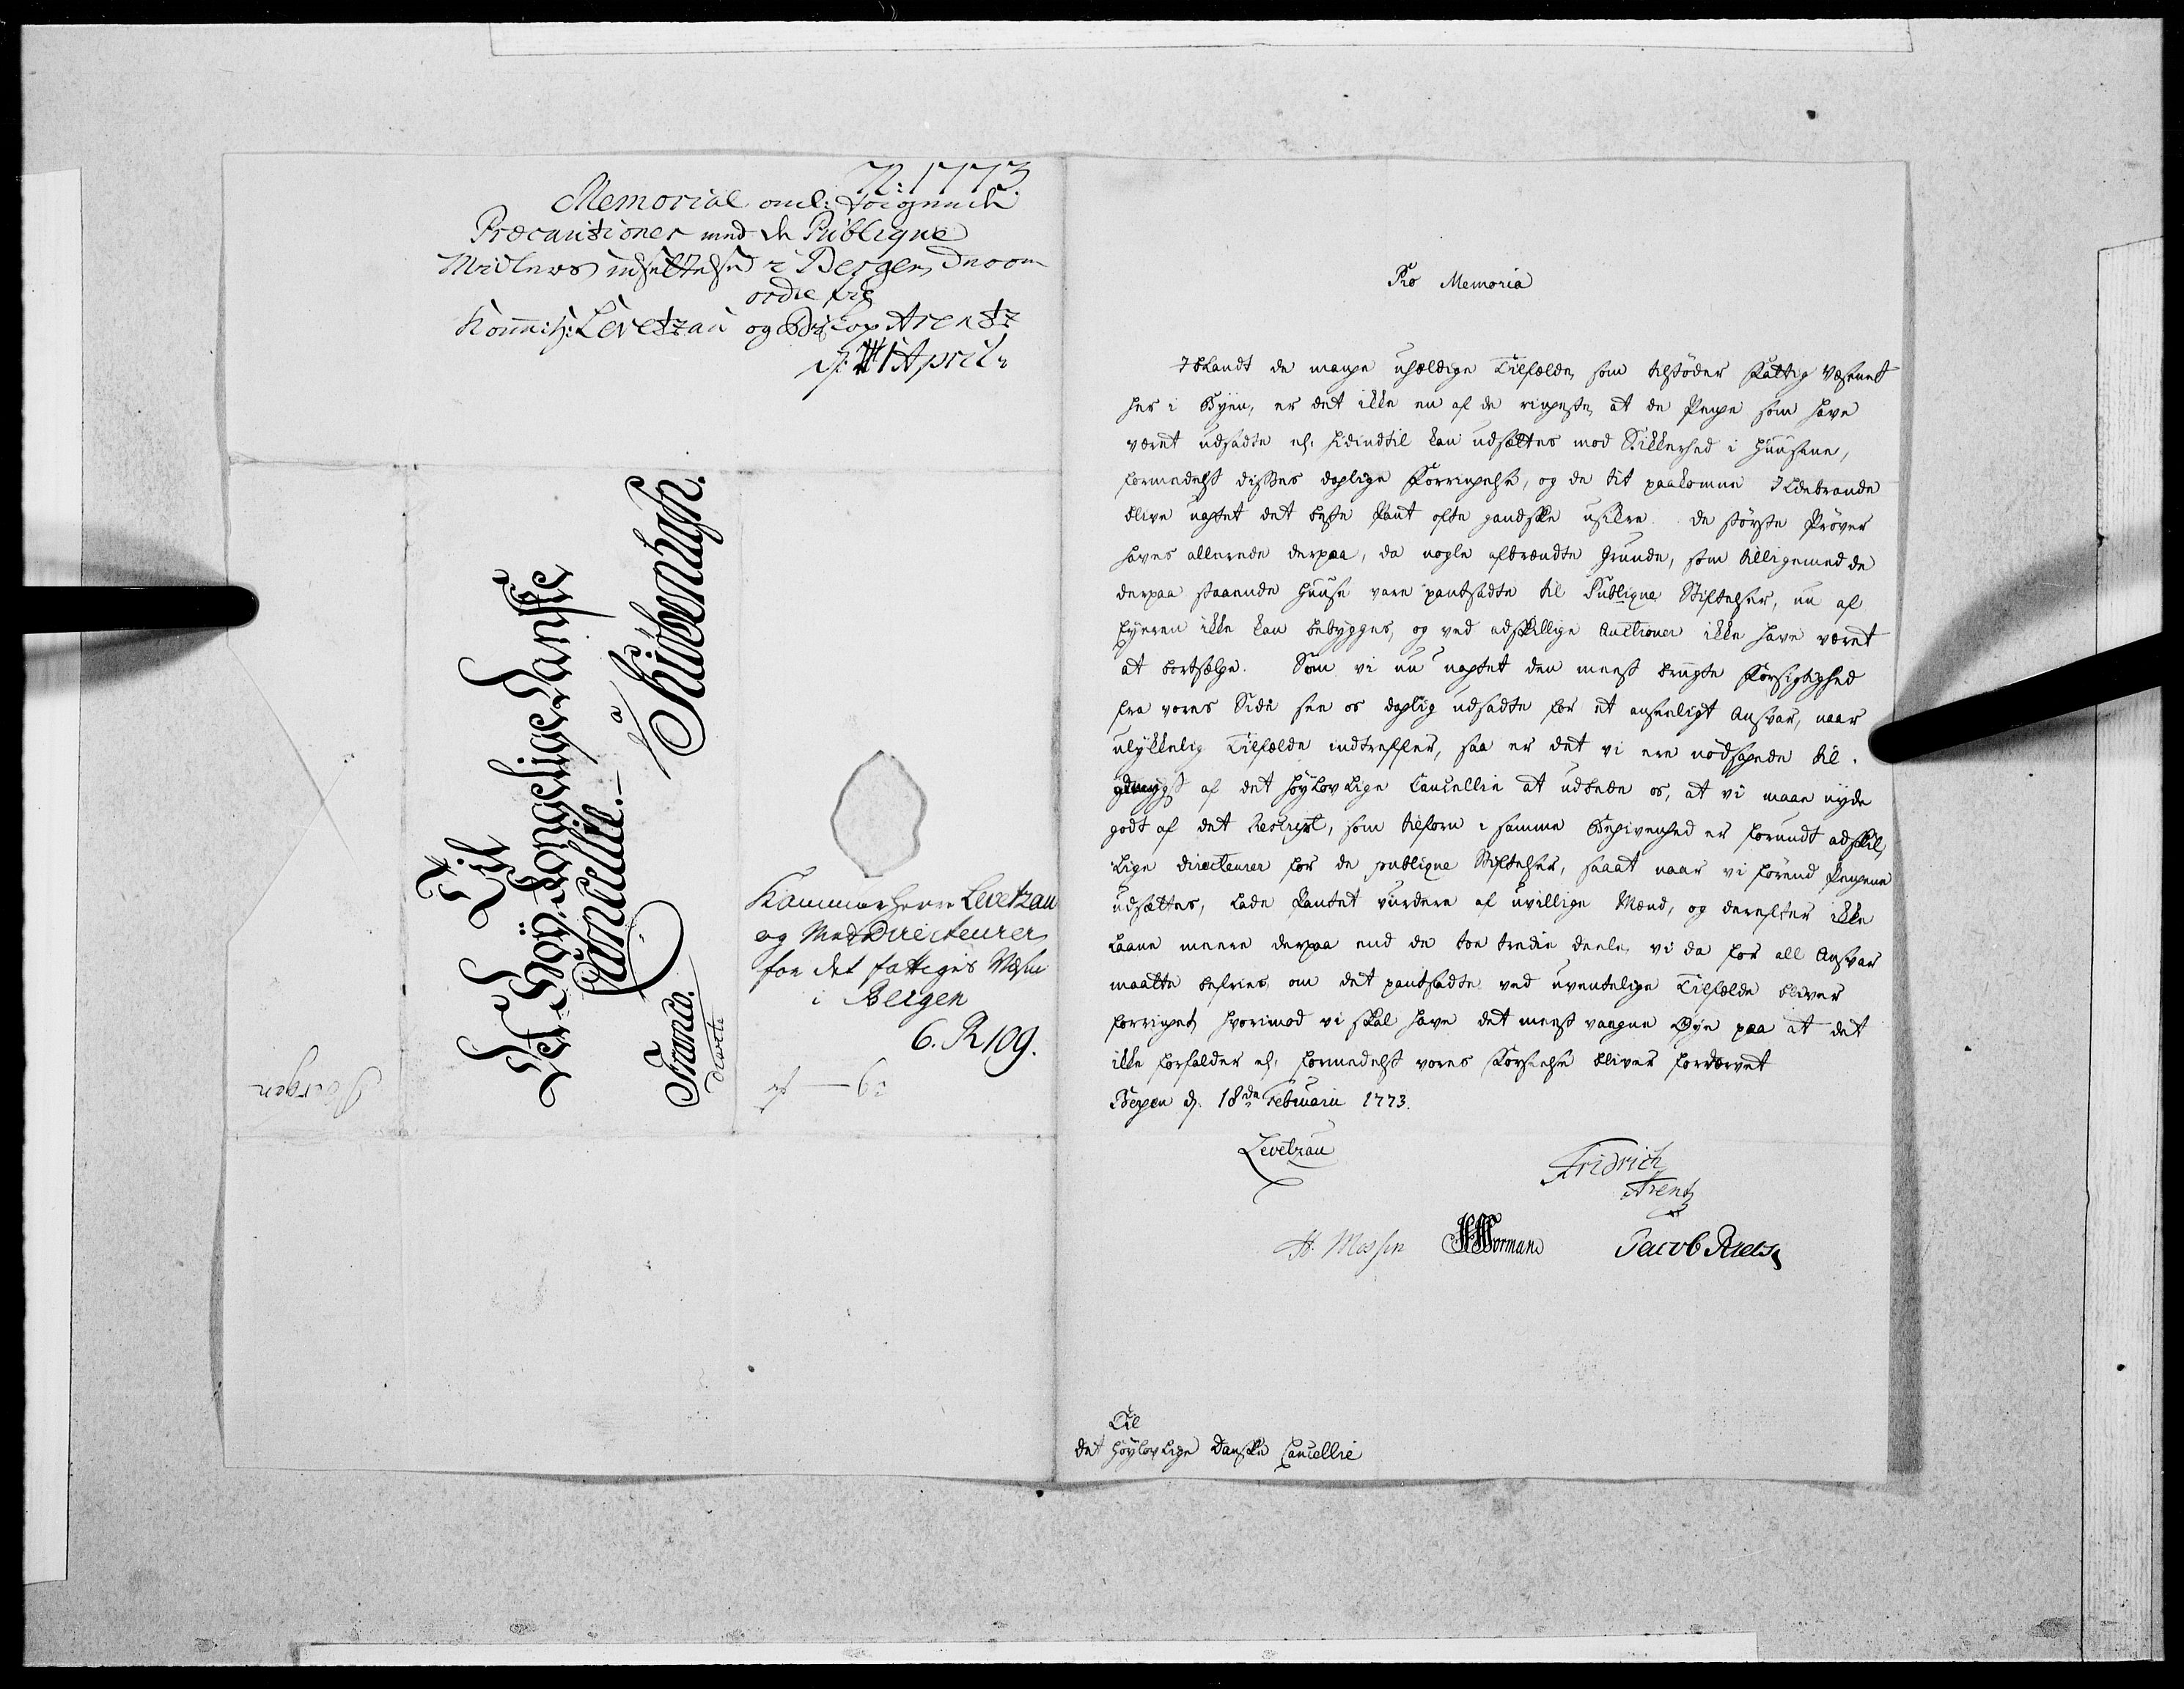 N: 1773.
Memorial
Præcautioner med de Publique
Midlers udsettelse i Bergen
ordre fra
Levetzau og Biskop Arentz
April
Til
Det Höy-Kongelige Danske
Cancellie.
a
Kiöbenhafn.
Franco.
Kammerherre Levetzau
og Med Directeurer
for det fattiges Væsen
i Bergen
6. R 109.
Bergen
Pro Memoria
Iblandt de mange uheldige Tilfælde, som tilstöder Fattig Væsenet
her i Byen, er det ikke en af de ringeste, at de Penge som have
været udsadte el: hidindtil kan udsættes mod Sikkerhed i Huusene,
formedelst disses daglige Forringelse, og de tit paakomne Ildebrande
blive uagtet det beste Pant ofte gandske usikre. De störste Pröver
haves allerede derpaa, da nogle afbrændte Grunde, som tilligemed de
derpaa staaende Huuse vare pantsadte til Publique Stiftelser, nu af
Eyeren ikke kan bebygges, og ved adskillige Auctioner ikke have været
at bortsælge. Som vi nu uagtet den meest brugte Forsigtighed
fra vores Side see os daglig udsadte for et anseeligt Ansvar, naar
ulykkelig Tilfælde indtreffer, saa er det vi ere nödsagede til
af det höylovlige Cancellie at udbede os, at vi maae nyde
godt af det Rescript, som tilforn i samme Begivenhed er forundt adskil-
lige Directeurer for de publique Stiftelser, saaat naar vi förend Pengene
udsættes, lade Pantet vurdere af uvillige Mænd, og derefter ikke
laane meere derpaa end de toe tredie deele, vi da for all Ansvar
maatte befries, om det pantsadte ved uventelige Tilfælde bliver
forringet, hvorimod vi skal have det meest vaagne Øye paa at det
ikke forfalder el: formedelst vores Forseelse bliver fordervet
Bergen d: 18de Februarii 1773.
Levetzau
Fridrich
Arentz
Jacob
Til
det höylovlige Danske Cancellie